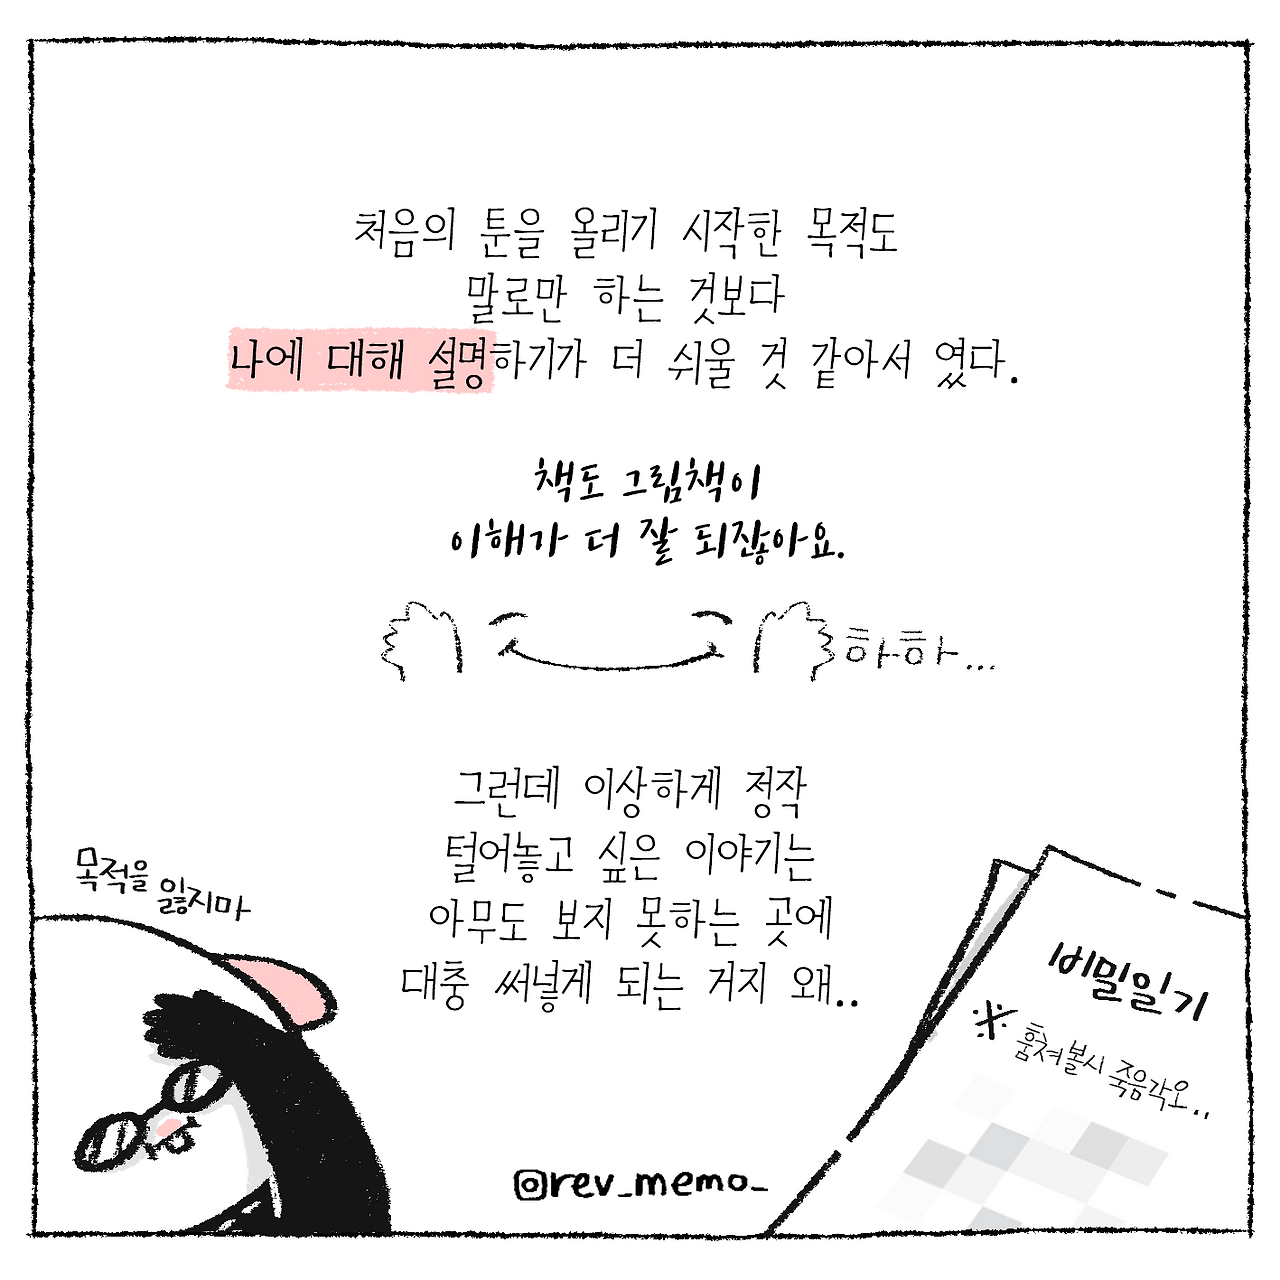 처음의 툰을 올리기 시작한 목적도
말로만 하는 것보다
나에 대해 설명하기가 더 쉬울 것 같아서 였다.
책도 그림책이
이해가 더 잘 되잖아요.
하하...
그런데 이상하게 정작
털어놓고 싶은 이야기는
아무도 보지 못하는 곳에
대충 써넣게 되는 거지 왜..
목적을 잃지마
비밀일기
※ 훔쳐볼시 죽음각오..
@rev_memo_